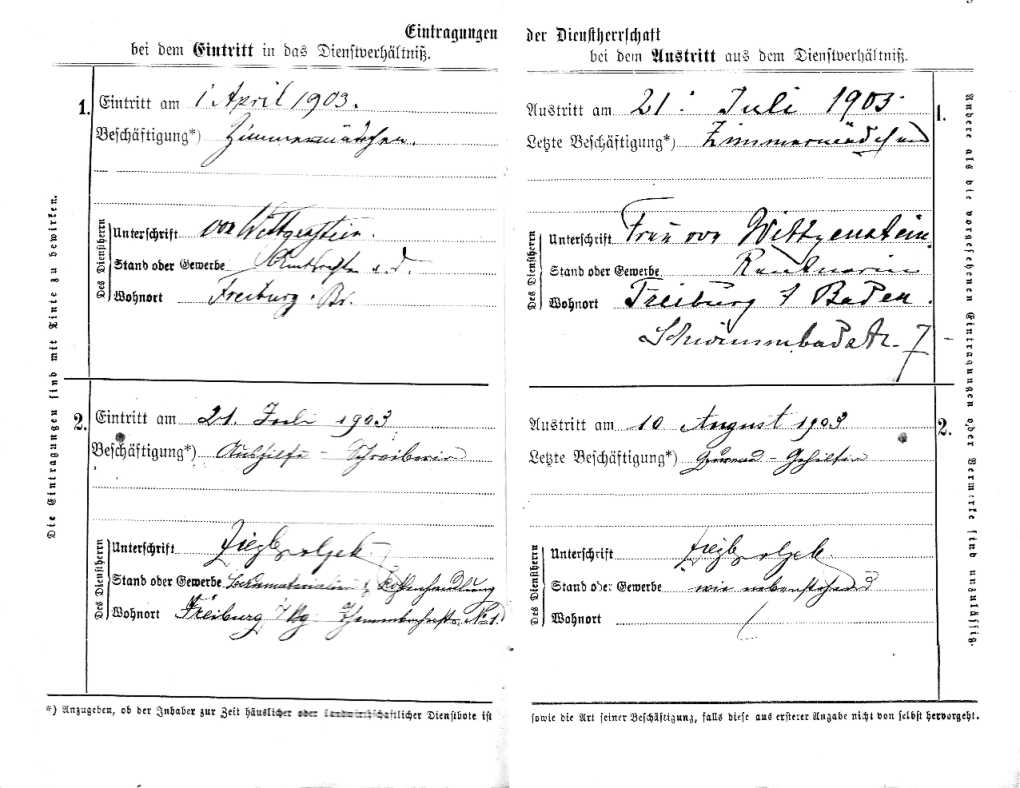 Eintragungen der Dienstherrschaft
bei dem Eintritt in das Dienstverhältniß.
1. Eintritt am 1 April 1903.
Beschäftigung*) Zimmermädchen.
Des Dienstherrn
Unterschrift von Wittgenstein.
Stand oder Gewerbe
Wohnort Freiburg i Br.
2. Eintritt am 21. Juli 1903
Beschäftigung*) Aushilfe - Schreiberin
Des Dienstherrn
Unterschrift
Stand oder Gewerbe Baumaterialien & Kohlenhandlung
Wohnort Freiburg i/Bg. No 1.
Die Eintragungen sind mit Tinte zu bewirken.
*) Anzugeben, ob der Inhaber zur Zeit häuslicher oder landwirthschaftlicher Dienstbote ist
bei dem Austritt aus dem Dienstverhältniß.
1. Austritt am 21. Juli 1903
Letzte Beschäftigung*) Zimmermädchen
Des Dienstherrn
Unterschrift Frau von Wittgenstein.
Stand oder Gewerbe Rentnerin
Wohnort Freiburg i Baden.
Schwimmbadstr. 7
2. Austritt am 10 August 1903
Letzte Beschäftigung*) Gehilfin
Des Dienstherrn
Unterschrift
Stand oder Gewerbe wie nebenstehend
Wohnort
Andere als die vorgesehenen Eintragungen oder Vermerke sind unzulässig.
sowie die Art seiner Beschäftigung, falls diese aus ersterer Angabe nicht von selbst hervorgeht.